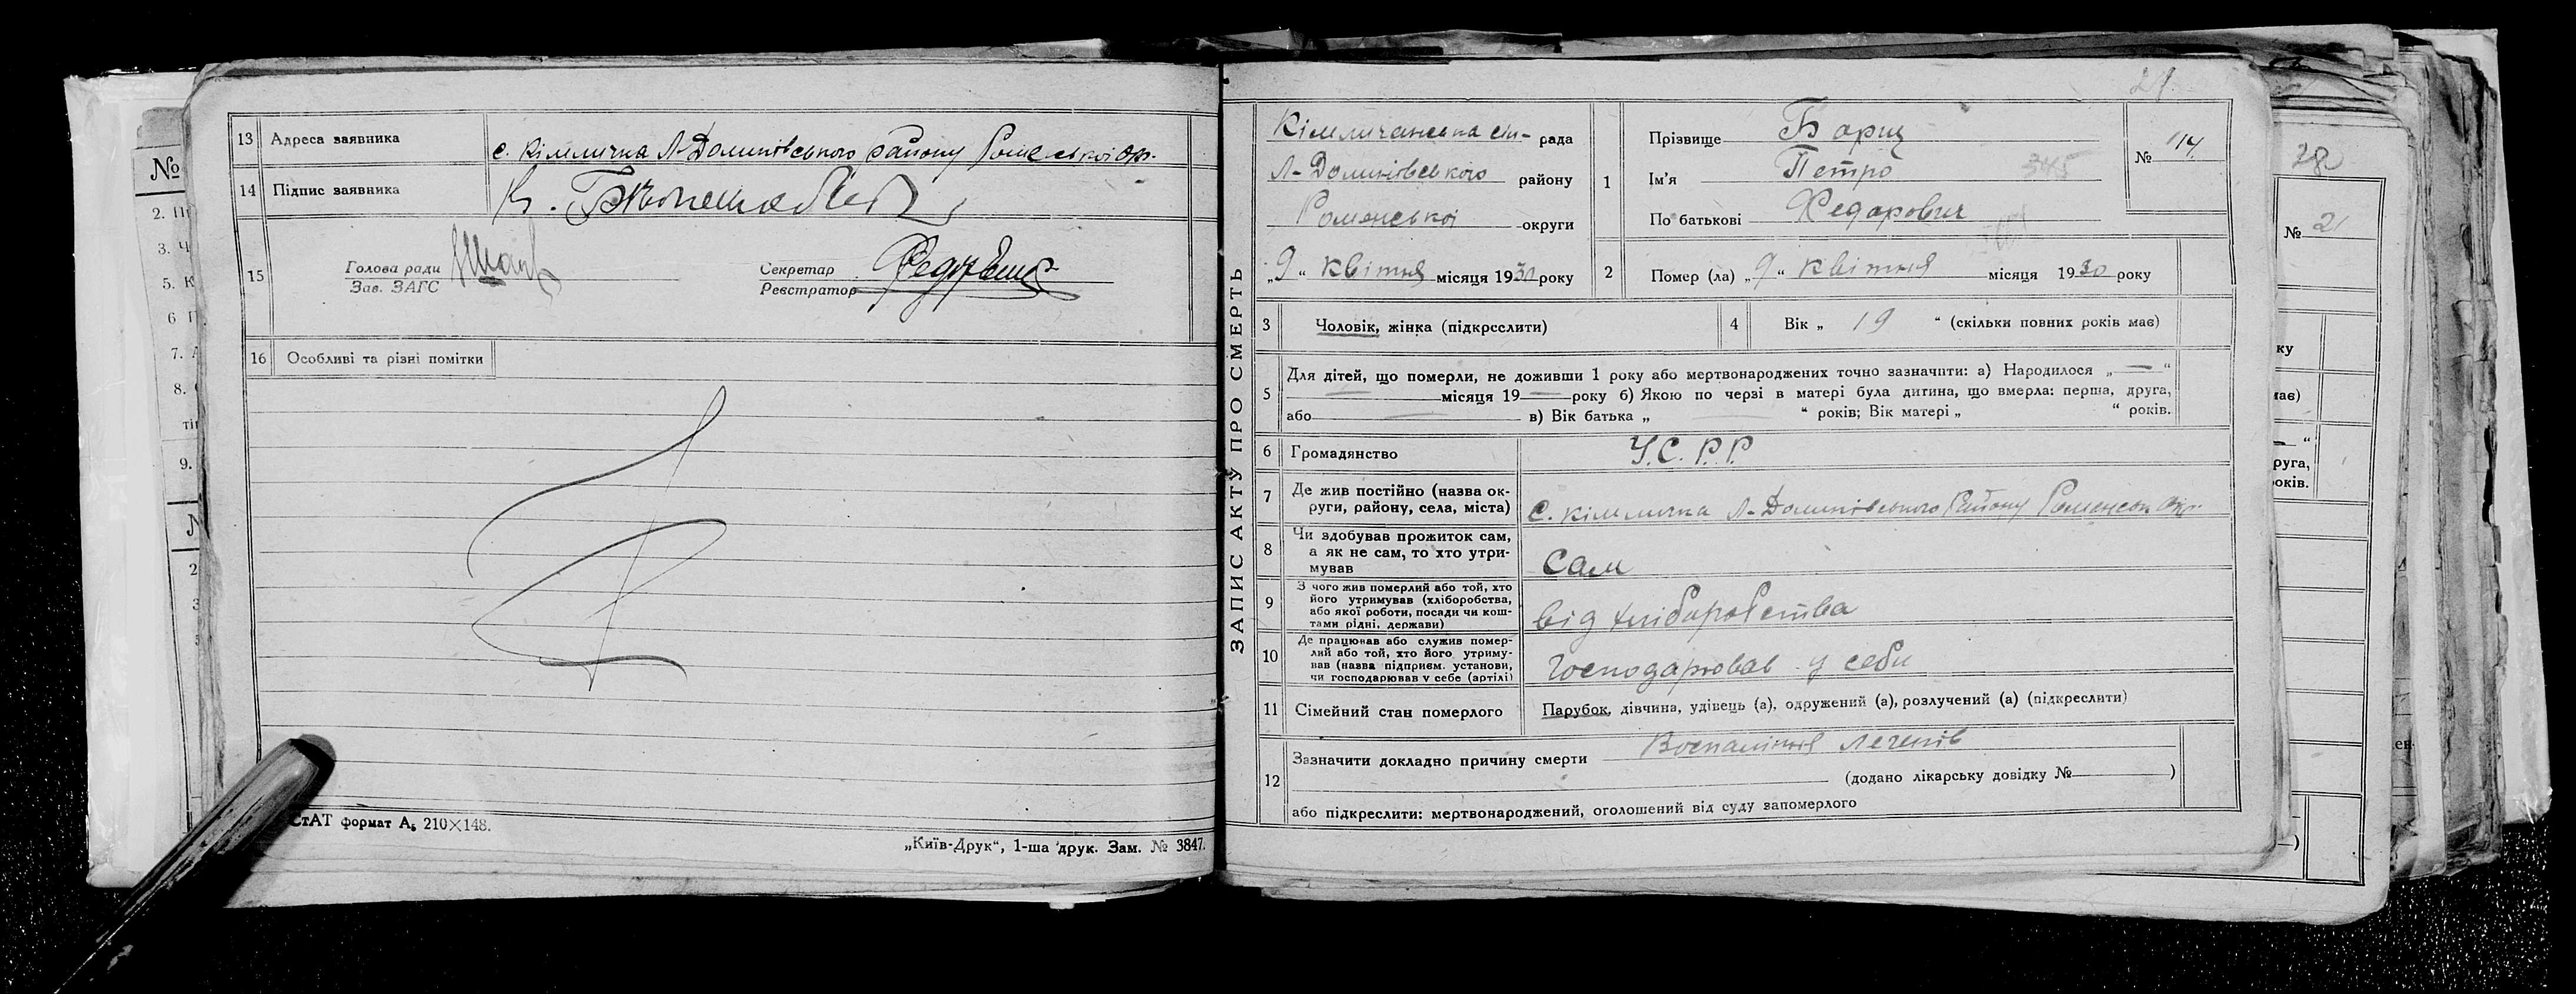 13 Адреса заявника с. Кімличка Л-Долинівського району Роменської окр.
14 Підпис заявника К.
15 Голова ради Секретар
Зав. ЗАГС Реєстратор
16 Особливі та різні помітки
СтАТ формат А₅ 210×148.
„Київ-Друк“, 1-ша друк. Зам. № 3847.
№
2.
3. Ч
5. К
7.
8.
9.
ЗАПИС АКТУ ПРО СМЕРТЬ
Кімличанська сіл- рада
Л-Долинівського району
Роменської округи
„9“ квітня місяця 1930 року
1 Прізвище Барщ
Ім'я Петро 345
По батькові Федарович
№ 14
2 Помер (ла) „9“ квітня місяця 1930 року
3 Чоловік, жінка (підкреслити)
4 Вік „ 19 “ (скільки повних років має)
5 Для дітей, що померли, не доживши 1 року або мертвонароджених точно зазначити: а) Народилося „—“
місяця 19— року б) Якою по черзі в матері була дитина, що вмерла: перша, друга,
або в) Вік батька „ “ років; Вік матері „ “ років.
6 Громадянство У.С.Р.Р.
7 Де жив постійно (назва ок-
руги, району, села, міста) с. Кімличка Л-Долинівського Району Роменськ окр.
8 Чи здобував прожиток сам,
а як не сам, то хто утри-
мував сам
9 З чого жив померлий або той, хто
його утримував (хліборобства,
або якої роботи, посади чи кош-
тами рідні, держави) від хліборобства
10 Де працював або служив помер-
лий або той, хто його утриму-
вав (назва підприєм. установи,
чи господарював у себе (артілі) Господарював у себи
11 Сімейний стан померлого Парубок, дівчина, удівець (а), одружений (а), розлучений (а) (підкреслити)
12 Зазначити докладно причину смерти Воспаління легенів
(додано лікарську довідку № )
або підкреслити: мертвонароджений, оголошений від суду запомерлого
28
№ 21
ку
має)
руга,
оків.